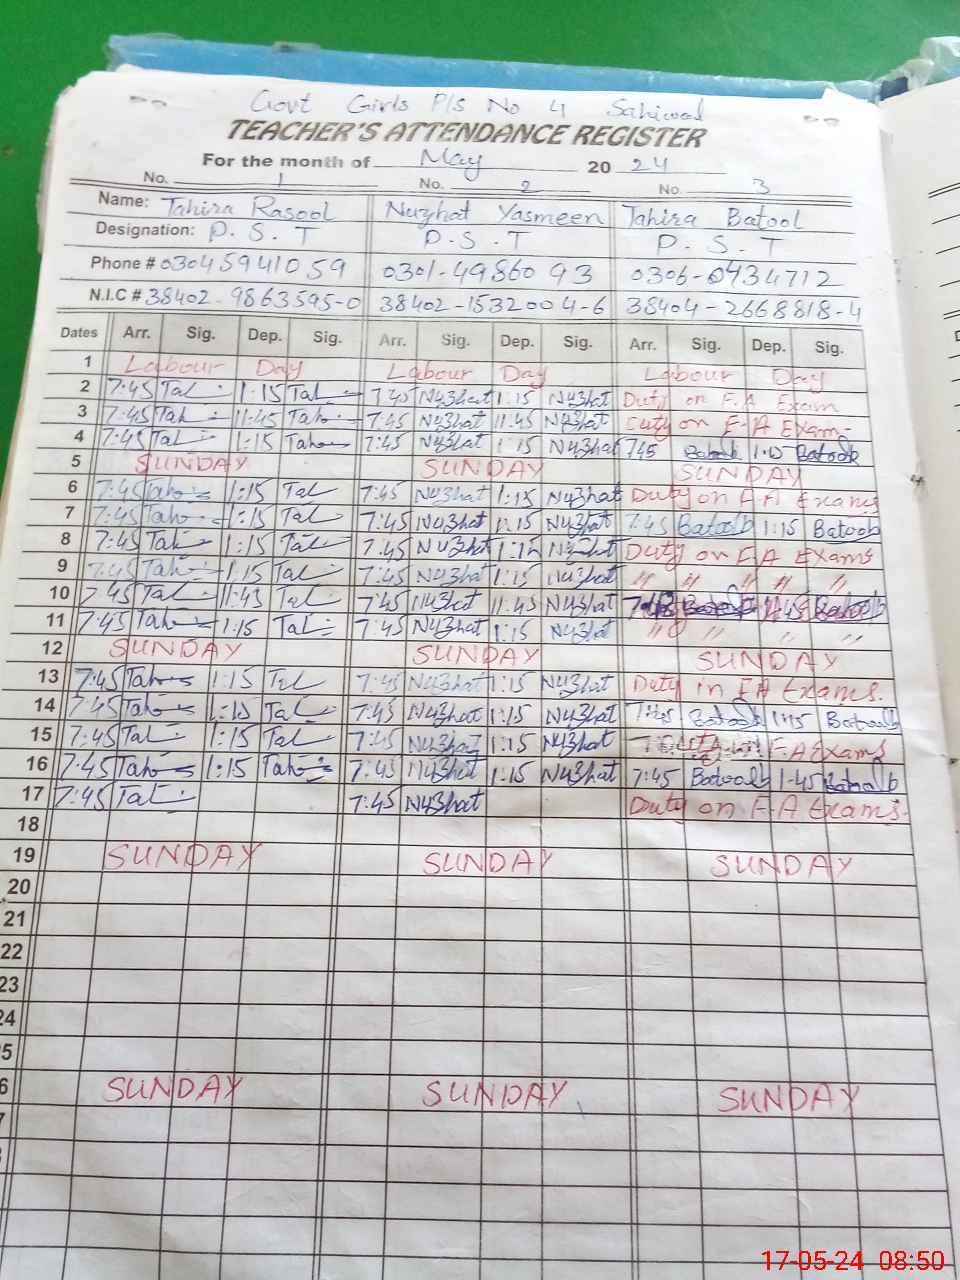 Govt Girls P/S No 4 Sahiwal
TEACHER'S ATTENDANCE REGISTER
For the month of May 2024
No. 1 No. 2 No. 3
Name: Tahira Rasool Nuzhat Yasmeen Tahira Batool
Designation: P.S.T P.S.T P.S.T
Phone # 03045941059 0301-4986093 0306-0434712
N.I.C # 38402-9863595-0 38402-1532004-6 38404-2668818-4
Dates Arr. Sig. Dep. Sig. Arr. Sig. Dep. Sig. Arr. Sig. Dep. Sig.
1 Labour Day Labour Day Labour Day
2 7:45 Tah 1:15 Tah 7:45 Nu3hat 1:15 Nu3hat Duty on F.A Exam
3 7:45 Tah 11:45 Tah 7:45 Nu3hat 11:45 Nu3hat Duty on F.A Exam
4 7:45 Tah 1:15 Tah 7:45 Nu3hat 1:15 Nu3hat 7:45 Batoolb 1:15 Batoolb
5 SUNDAY SUNDAY SUNDAY
6 7:45 Tah 1:15 Tah 7:45 Nu3hat 1:15 Nu3hat Duty on F.A Exams
7 7:45 Tah 1:15 Tah 7:45 Nu3hat 1:15 Nu3hat 7:45 Batoolb 1:15 Batoolb
8 7:45 Tah 1:15 Tah 7:45 Nu3hat 1:15 Nu3hat Duty on F.A Exams
9 7:45 Tah 1:15 Tah 7:45 Nu3hat 1:15 Nu3hat " " " " "
10 7:45 Tah 11:45 Tah 7:45 Nu3hat 11:45 Nu3hat 7:45 11:45 Batoolb
11 7:45 Tah 1:15 Tah 7:45 Nu3hat 1:15 Nu3hat " " " "
12 SUNDAY SUNDAY SUNDAY
13 7:45 Tah 1:15 Tah 7:45 Nu3hat 1:15 Nu3hat Duty in F.A Exams.
14 7:45 Tah 1:15 Tah 7:45 Nu3hat 1:15 Nu3hat 7:45 Batoolb 1:15 Batoolb
15 7:45 Tah 1:15 Tah 7:45 Nu3hat 1:15 Nu3hat F.A Exams
16 7:45 Tah 1:15 Tah 7:45 Nu3hat 1:15 Nu3hat 7:45 Batoolb 1:45 Batoolb
17 7:45 Tah 7:45 Nu3hat Duty on F.A Exams.
18
19 SUNDAY SUNDAY SUNDAY
20
21
22
23
24
5
6 SUNDAY SUNDAY SUNDAY
7
17-05-24 08:50